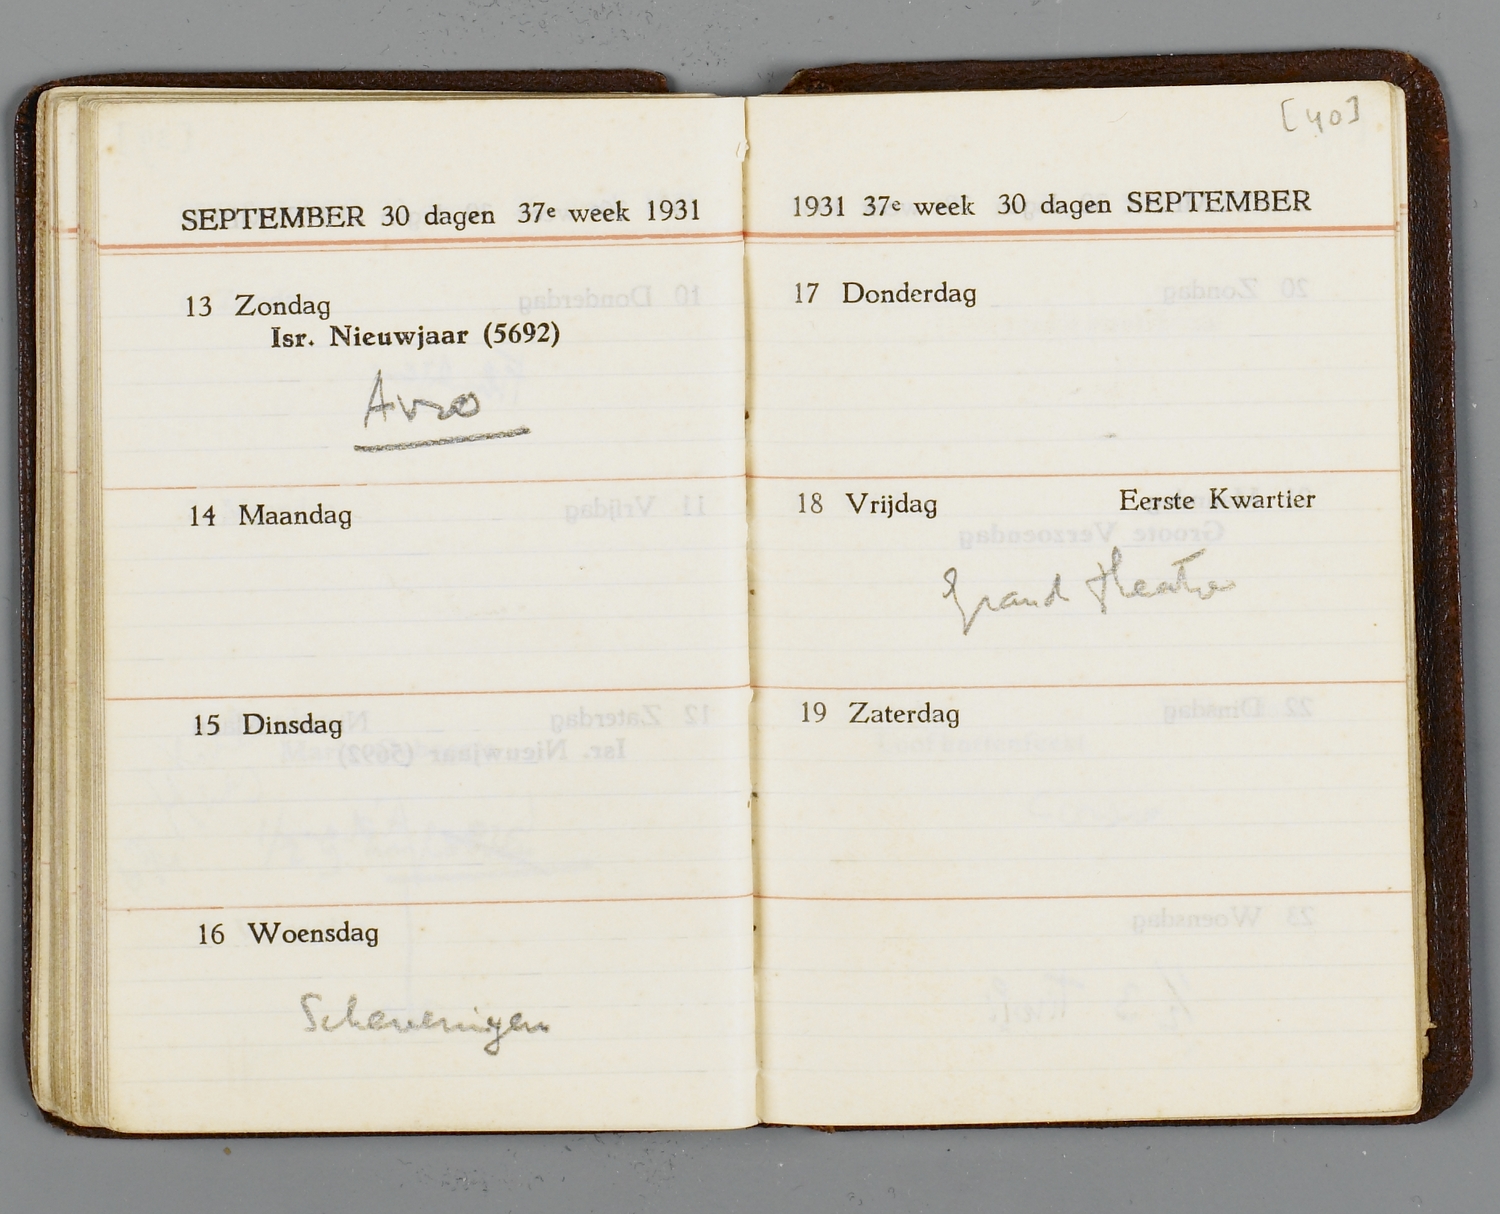 SEPTEMBER 30 dagen 37e week 1931
13 Zondag
Isr. Nieuwjaar (5692)
Avro
14 Maandag
15 Dinsdag
16 Woensdag
Scheveningen
[40]
1931 37e week 30 dagen SEPTEMBER
17 Donderdag
18 Vrijdag Eerste Kwartier
Grand Theatre
19 Zaterdag